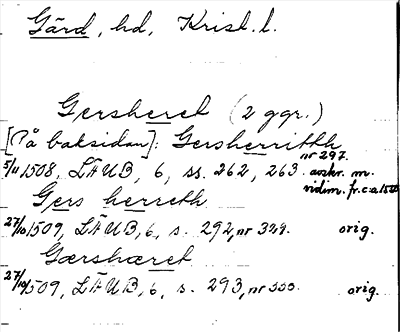 Gärd, hd, Krist. l.
Gersheret (2 ggr.)
[På baksidan]: Gersherritth
5/11 1508, LÄUB, 6, ss. 262, 263. nr 297. avskr. m.
vidim. fr. c:a 1520
Gers herreth
27/10 1509, LÄUB, 6, s. 292, nr 329. orig.
Gærshæret
27/10 1509, LÄUB, 6, s. 293, nr 330. orig.